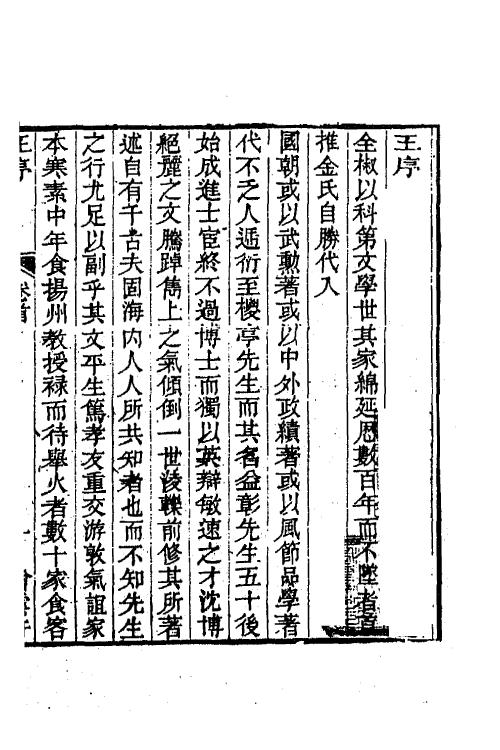 王序
全椒以科第文學世其家綿延歷數百年而不墜者首
推金氏自勝代入
國朝或以武勲著或以中外政績著或以風節品學著
代不乏人遞衍至椶亭先生而其名益彰先生五十後
始成進士宦終不過博士而獨以英辯敏速之才沈博
絕麗之文騰踔雋上之氣傾倒一世淩轢前修其所著
述自有千古夫固海內人人所共知者也而不知先生
之行尤足以副乎其文平生篤孝友重交游敦氣誼家
本寒素中年食揚州教授祿而待舉火者數十家食客
王序
卷首
一